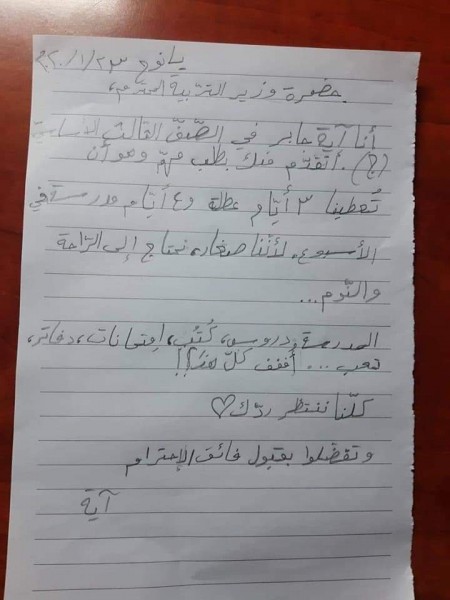 يانوح ٢٠٢٠/١/٢٣
حضرة وزير التربية المحترم،
أنا آية جابر في الصّفّ الثالث الأساسيّ
(ج). أتقدّم منك بطلب مهمّ وهو أن
تُعطينا ٣ أيّام عطلة و٤ أيّام مدرسة في
الأسبوع، لأنّنا صغار، نحتاج إلى الرّاحة
والنّوم...
المدرسة، دروس، كُتُب، امتحانات، دفاتر،
تعب... أففف كلّ هذا!!
كلّنا ننتظر ردّك♡
وتفضّلوا بقبول فائق الإحترام
آية